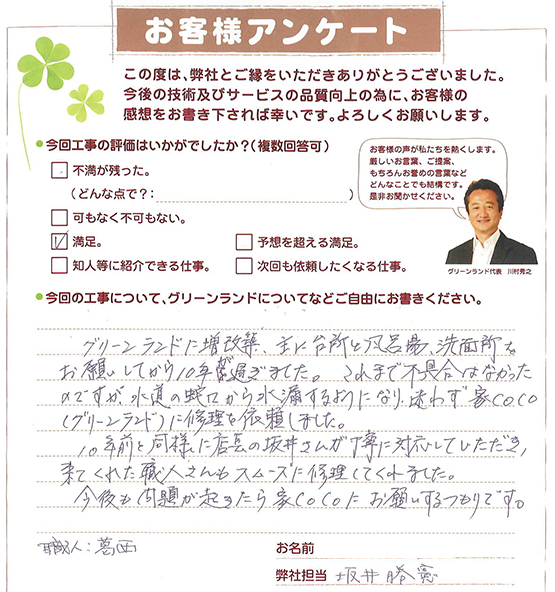 お客様アンケート
この度は、弊社とご縁をいただきありがとうございました。
今後の技術及びサービスの品質向上の為に、お客様の
感想をお書き下されば幸いです。よろしくお願いします。
●今回工事の評価はいかがでしたか?(複数回答可)
□ 不満が残った。
(どんな点で?: )
□ 可もなく不可もない。
☑ 満足。
□ 予想を超える満足。
□ 知人等に紹介できる仕事。
□ 次回も依頼したくなる仕事。
お客様の声が私たちを熱くします。
厳しいお言葉、ご提案、
もちろんお誉めの言葉など
どんなことでも結構です。
是非お聞かせください。
グリーンランド代表 川村秀之
●今回の工事について、グリーンランドについてなどご自由にお書きください。
グリーンランドに増改築、主に台所と風呂場、洗面所を
お願いしてから10年が過ぎました。これまで不具合はなかった
のですが、水道の蛇口から水漏するようになり、迷わず家COCO
(グリーンランド)に修理を依頼しました。
10年前と同様に店長の坂井さんが丁寧に対応していただき、
来てくれた職人さんもスムーズに修理してくれました。
今後も問題が起きたら家COCOにお願いするつもりです。
職人:葛西
お名前
弊社担当 坂井勝憲